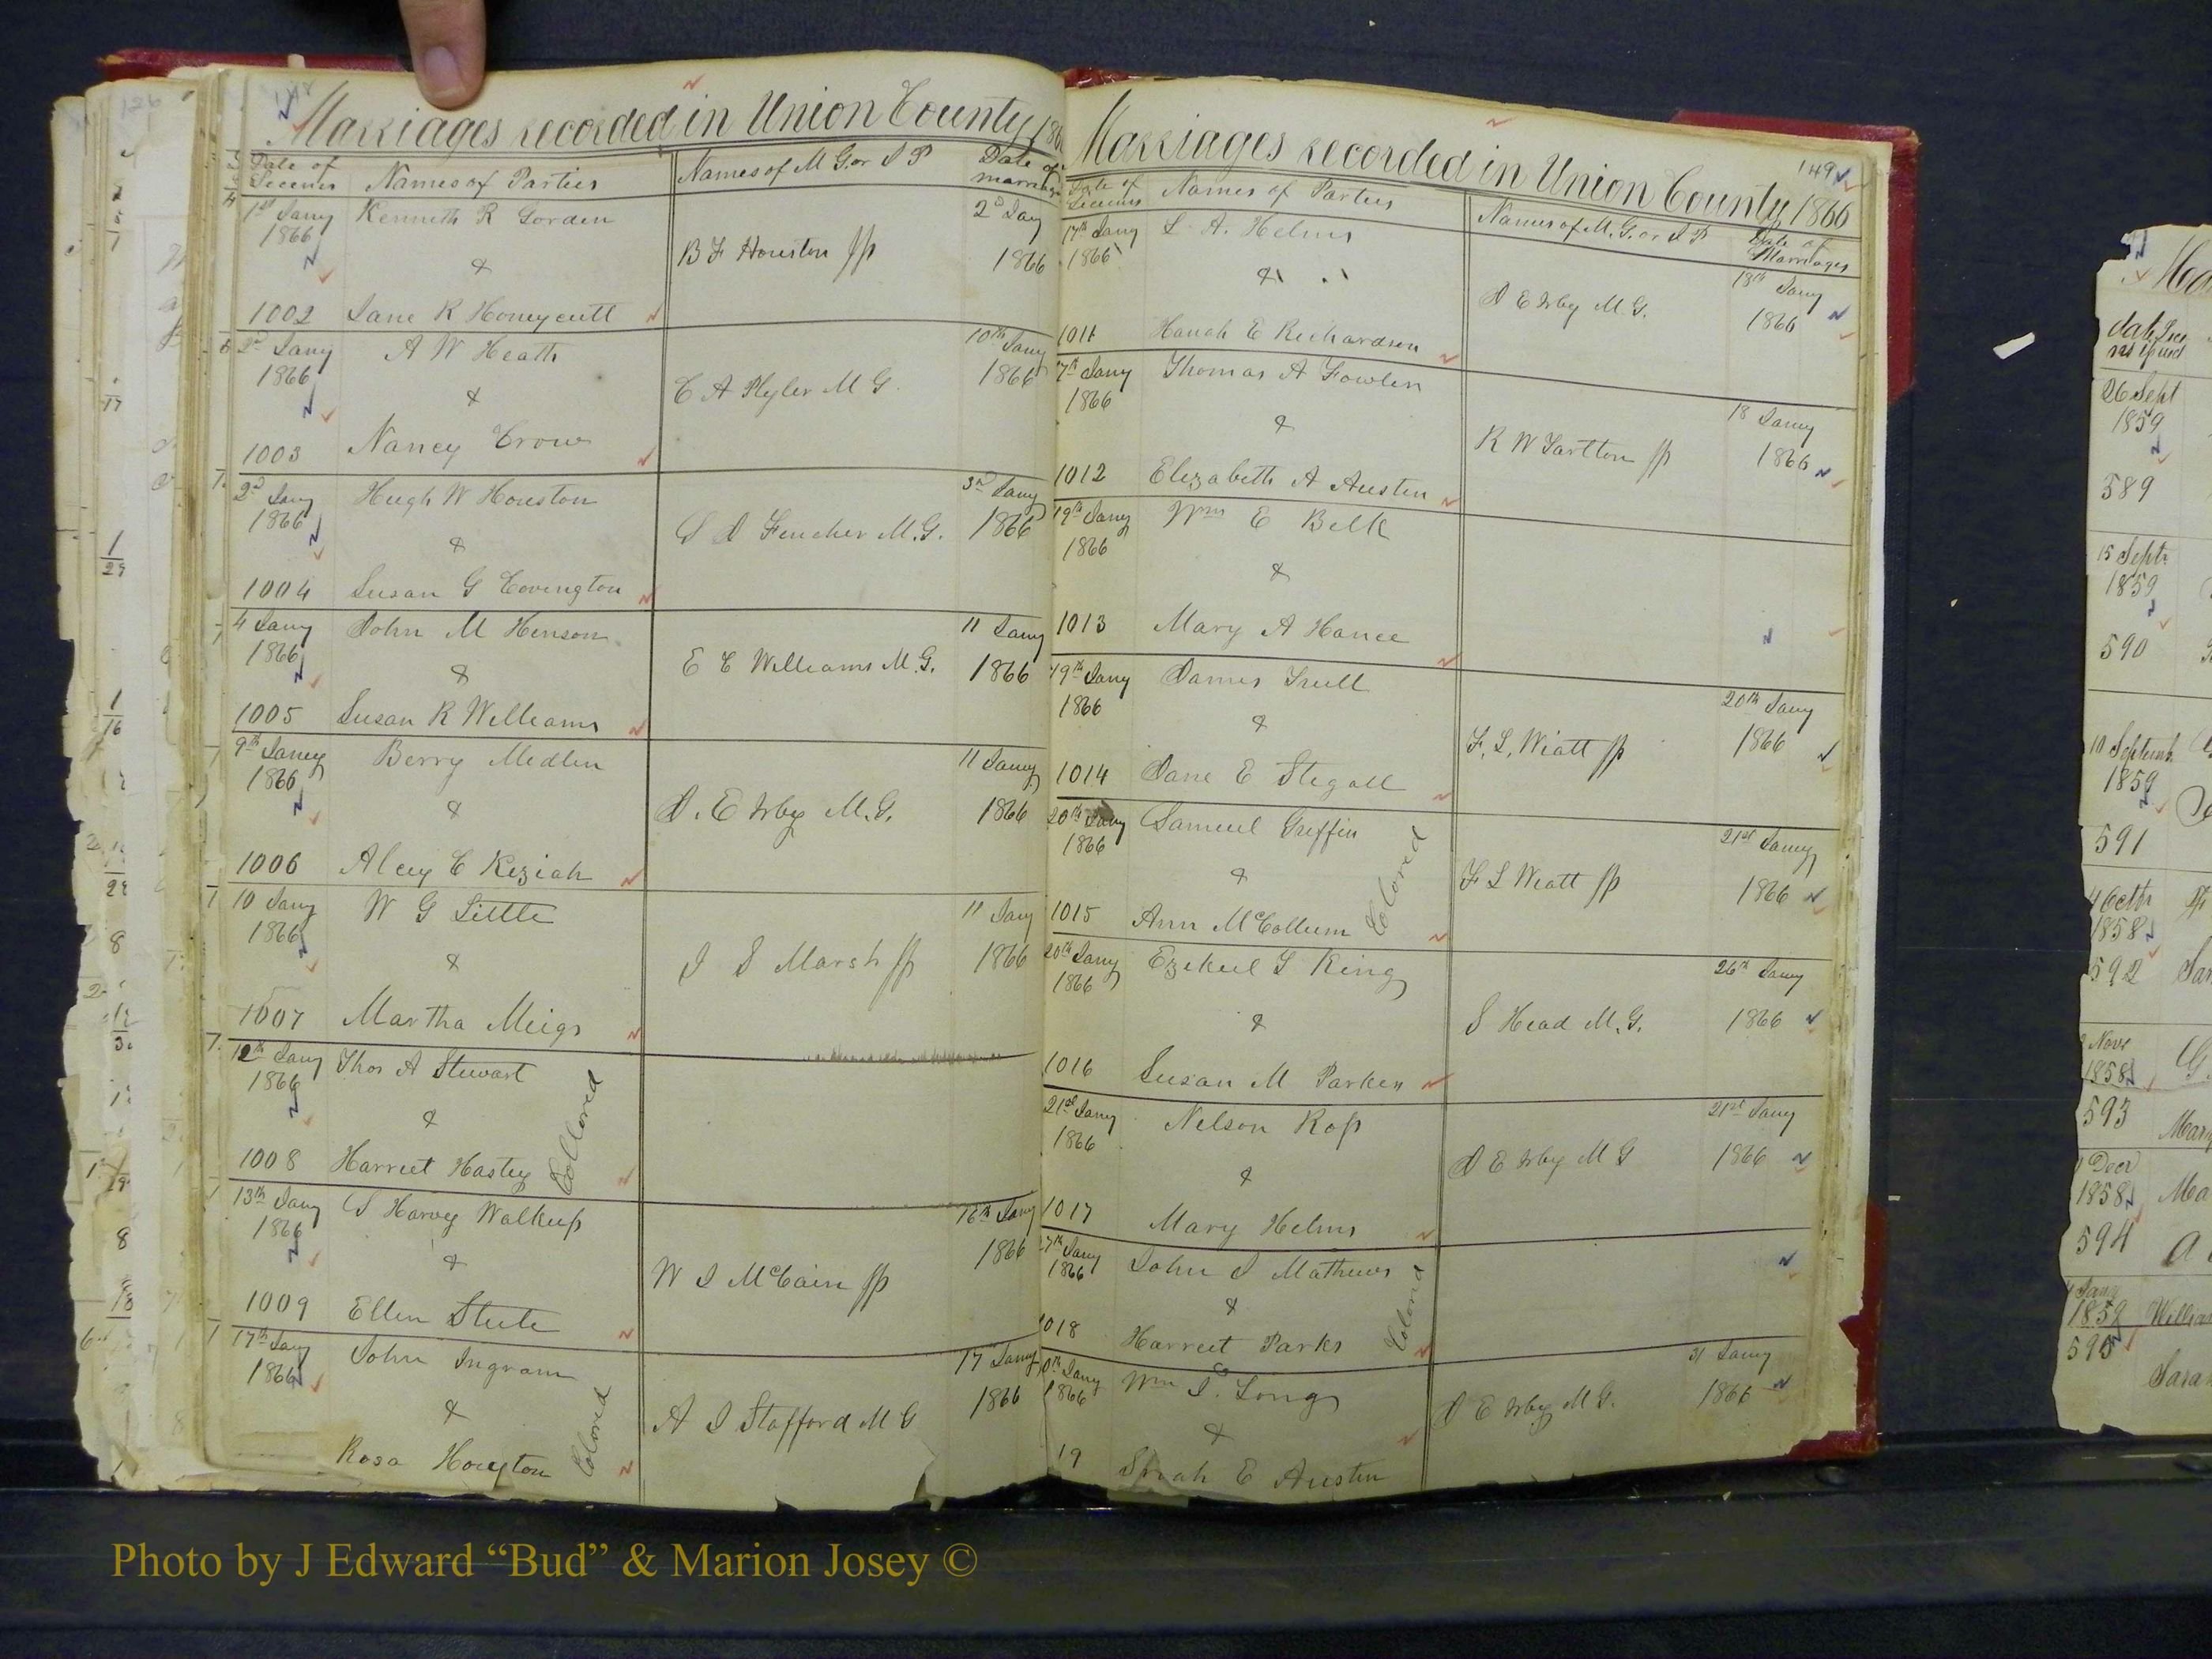 148
Marriages recorded in Union County 186
Date of Licenses Names of Parties Names of M G. or J P Date of marriage
1st Jany Kenneth R Gorden 2d Jay
1866 B F Houston JP 1866
&
1002 Jane R Honeycutt
2d Jany A W Heath 10th Jany
1866 C A Plyler M G. 1866
&
1003 Nancy Crow
2d Jany Hugh W Houston 3rd Jany
1866 S D Fencher M.G. 1866
&
1004 Susan G Covington
4 Jany John M Henson 11 Jany
1866 E C Williams M.G. 1866
&
1005 Susan R Williams
9th Janey Berry Medlin 11 Jany
1866 J. E Irby M.G. 1866
&
1006 Alcey C Keziah
10 Jany W G Little 11 Jany
1866 J S Marsh JP 1866
&
1007 Martha Meigs
12th Jany Thos A Stewart
1866
& Collored
1008 Harriet Hasty
13th Jany S Harvey Walkup 16th Jany
1866 1866
& W J McCain JP
1009 Ellen Steele
17th Jany John Ingram 17 Jany
1866 1866
& A J Stafford M G
Rosa Houston Colored
149
Marriages recorded in Union County 1866
Date of Licenses Names of Parties Names of M. G. or J P Date of Marriages
17th Jany L. A. Helms 18th Jany
1866 J E Irby M.G. 1866
&
1011 Hanah E Richardson
17th Jany Thomas A Fowler 18 Jany
1866 R W Tarlton JP 1866
&
1012 Elizabeth A Austin
19th Jany Wm E Belk
1866
&
1013 Mary A Hance
19th Jany James Trull 20th Jany
1866 F. L. Wiatt JP 1866
&
1014 Jane E Stegall
20th Jany Samuel Griffin 21st Jany
1866 F L Wiatt JP 1866
& Colored
1015 Ann McCollum
20th Jany Ezekiel T King 26th Jany
1866 S Head M.G. 1866
&
1016 Susan M Parker
21st Jany Nelson Ross 21st Jany
1866 J E Irby M G 1866
&
1017 Mary Helms
27th Jany John J Mathews
1866
& Colord
1018 Harreet Parks
0th Jany Wm J. Long 31 Jany
1866 J E Irby M G. 1866
&
19 Sarah E Austin
26 Sept
1859
589
15 Sept
1859
590
10 Septemb
1859
591
4 Octr
1858
592
Nove
1858
593
Decr
1858
594
Jany
1859
595
Photo by J Edward “Bud” & Marion Josey ©